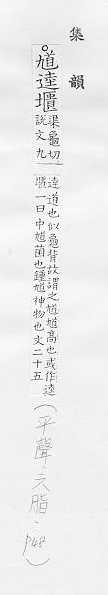 集韻
馗逵𡐾渠龜切說文九
逵道也似龜背故謂之馗馗高也或作逵
𡐾一曰中馗菌也鍾馗神物也文二十五
(平聲·六脂·p48)